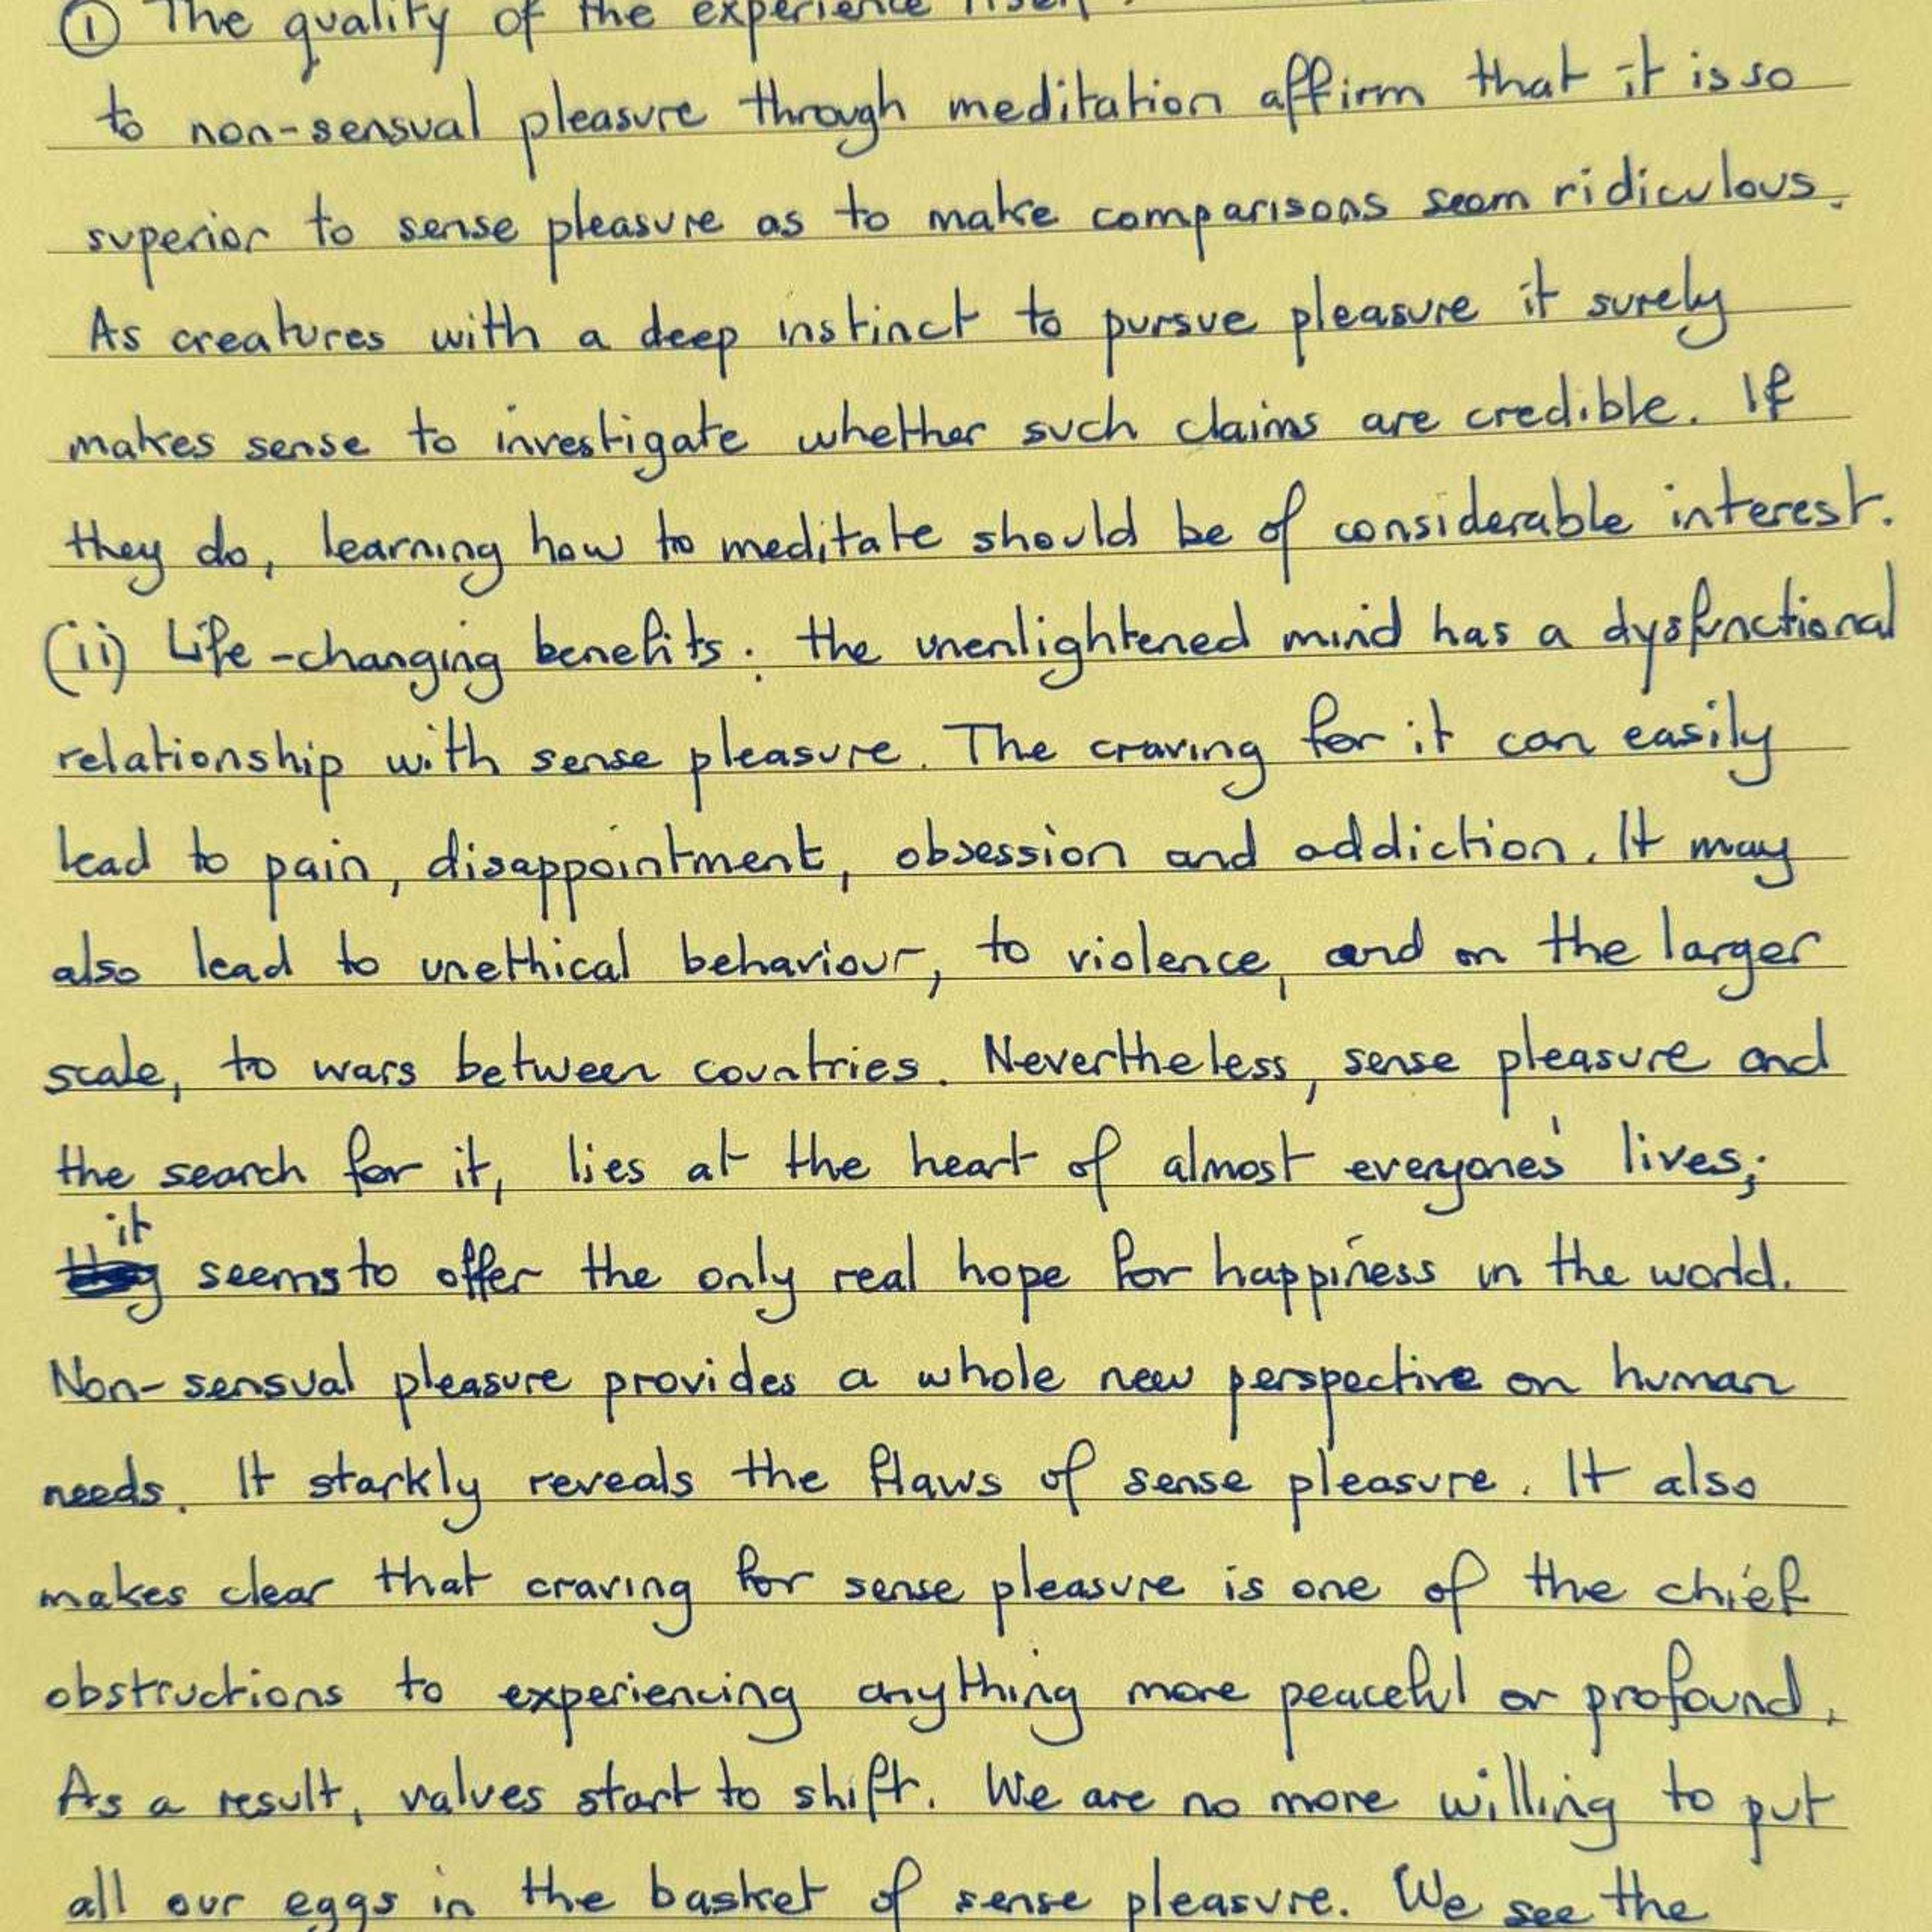 ① The quality of the experience itself
to non-sensual pleasure through meditation affirm that it is so
superior to sense pleasure as to make comparisons seem ridiculous.
As creatures with a deep instinct to pursue pleasure it surely
makes sense to investigate whether such claims are credible. If
they do, learning how to meditate should be of considerable interest.
(ii) Life-changing benefits: the unenlightened mind has a dysfunctional
relationship with sense pleasure. The craving for it can easily
lead to pain, disappointment, obsession and addiction. It may
also lead to unethical behaviour, to violence, and on the larger
scale, to wars between countries. Nevertheless, sense pleasure and
the search for it, lies at the heart of almost everyones' lives;
it seems to offer the only real hope for happiness in the world.
Non-sensual pleasure provides a whole new perspective on human
needs. It starkly reveals the flaws of sense pleasure. It also
makes clear that craving for sense pleasure is one of the chief
obstructions to experiencing anything more peaceful or profound.
As a result, values start to shift. We are no more willing to put
all our eggs in the basket of sense pleasure. We see the